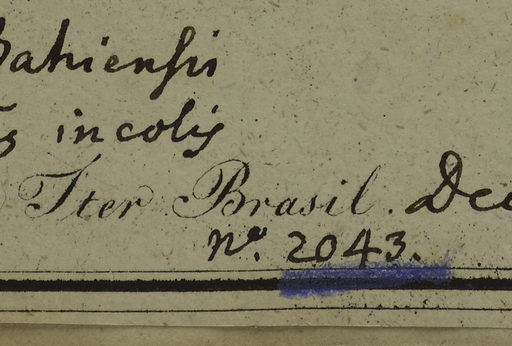 Bahiensis
incolis
Iter Brasil. Dec
nº. 2043.